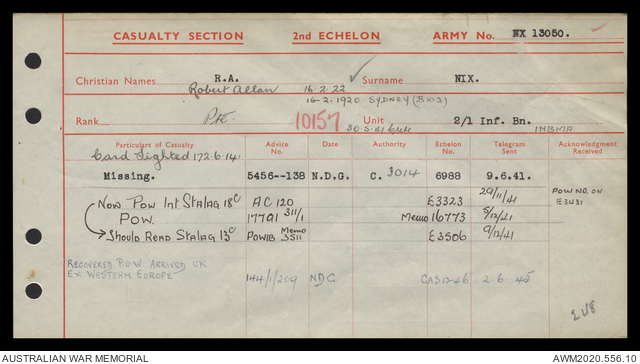 CASUALTY SECTION 2ND ECHELON ARMY No. NX 13050.
Christian Names R.A. Surname NIX.
Robert Allan 16.2.22
16-2-1920 SYDNEY (B103)
Rank Pte. 10157 Unit 2/1 Inf. Bn.
30.5.41 Crete
Particulars of Casualty Advice No. Date Authority Echelon No. Telegram Sent Acknowledgment Received
Card Sighted 17.2.6.41
Missing. 5456--138 N.D.G. C. 3014 6988 9.6.41.
Now POW Int. Stalag 18C AC 120 E3323 29/11/41 POW NO. ON E3431
POW. 17791 311/1 Memo 16773 5/12/41
Should Read Stalag 13C POWIB Memo 3511 E3506 9/12/41
RECOVERED P.O.W ARRIVED UK
EX WESTERN EUROPE 144/1/209 NDG CAS1246 2.6.45
AUSTRALIAN WAR MEMORIAL AWM2020.556.10